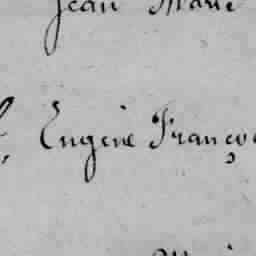 Jean Marie
Eugène Franço